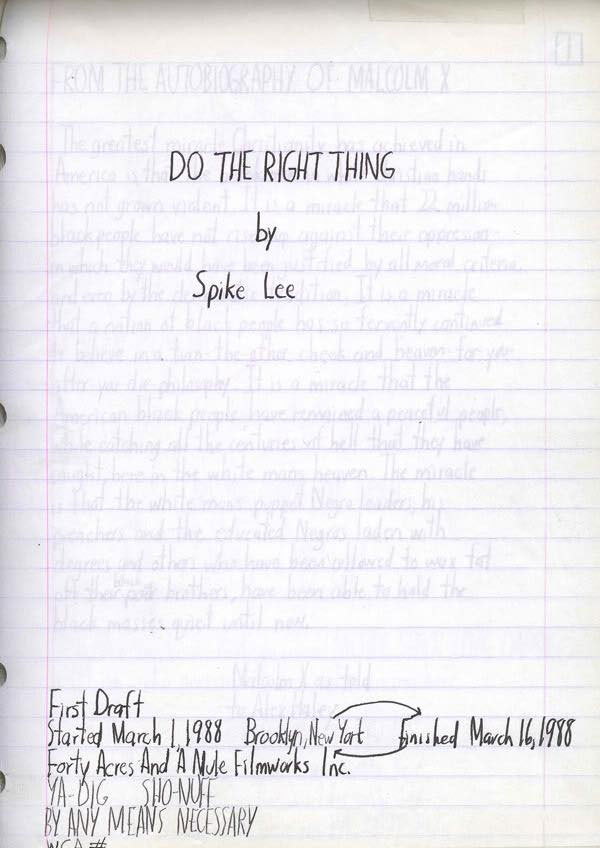 DO THE RIGHT THING
by
Spike Lee
First Draft
Started March 1, 1988 Brooklyn, New York finished March 16, 1988
Forty Acres And A Mule Filmworks Inc.
YA-DIG SHO-NUFF
BY ANY MEANS NECESSARY
WGA #
1
FROM THE AUTOBIOGRAPHY OF MALCOLM X
The greatest miracle Christianity has achieved in
America is that the hands
has not grown violent. It is a miracle that 22 million
black people have not risen up against their oppressors
in which they would have been justified by all moral criteria,
and even by the tradition. It is a miracle
that a nation of black people has so fervently continued
to believe in a turn-the other cheek and heaven for you
after you die philosophy. It is a miracle that the
American black people have remained a peaceful people,
while catching all the centuries of hell that they have
caught, here in the white mans heaven. The miracle
is that the white mans puppet Negro leaders, his
preachers and the educated Negros laden with
degrees and others who have been allowed to wax fat
off their black poor brothers, have been able to hold the
black masses quiet until now.
Malcolm X as told
to Alex Haley